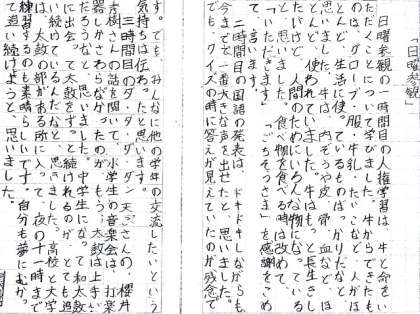 「日曜参観」
日曜参観の一時間目の人権学習は、牛と命をい
ただくことについて学びました。牛からできたも
のは、グローブ、服、牛乳、たいこなど、人がほ
とんど生活に使っているものばかりだなと
思いました。牛は、内ぞうや皮、骨、血などほ
とんど使われていました。牛はもっと長生きし
たいけど、人間のためにいろんな物になっている
と思いました。食べ物を食べる時は改めて、
「いただきます」「ごちそうさま」を感謝をこめ
て言います。
二時間目の国語の発表は、ドキドキしながらも
今までで一番大きな声を出せたと思いました。
でも、クイズの時に答えが見えていたのが残念で
でも、みんなに他の学年の交流したいという
気持ちは伝わったと思います。
三時間目のダ・ダ・ダン天三さんの、櫻井
樹さんの話を聞いて、小学生の音楽会は、打楽
器しかさわらなかったのが、もう、太鼓は上手い
だろうなと思いました。中学生になって和太鼓
に出会って太鼓をずっと続けれるのが、とても追
い続けているんだなと思いました。高校と大学
は、太鼓の部がある所に入って、夜の十一時まで
練習するのも素晴らしいです。自分も夢にむか
って追い続けようと、思いました。